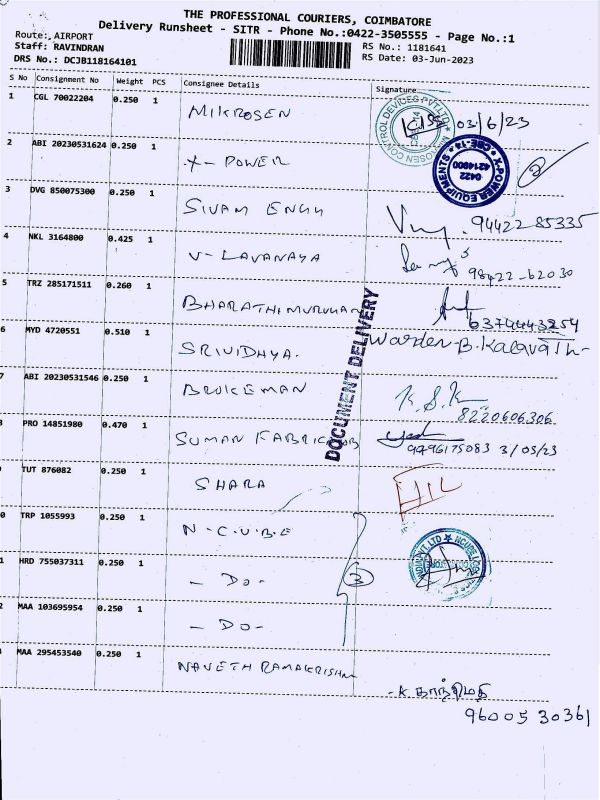 THE PROFESSIONAL COURIERS, COIMBATORE
Delivery Runsheet - SITR - Phone No.:0422-3505555 - Page No.:1
Route: AIRPORT
Staff: RAVINDRAN
DRS No.: DCJB118164101
RS No.: 1181641
RS Date: 03-Jun-2023
S No Consignment No Weight PCS Consignee Details Signature
1 CGL 70022204 0.250 1 MIKROSEN 03/6/23
MIKROSEN CONTROL DEVICES PVT.LTD
2 ABI 20230531624 0.250 1 X-POWER
X-POWER EQUIPMENTS CBE-14 0422 4214900
3 DVG 850075300 0.250 1 SIVAM ENGG 94422-85335
4 NKL 3164800 0.425 1 V-LAVANAYA
98422-62030
5 TRZ 285171511 0.260 1 BHARATHIMURUGAN 6374443254
6 MYD 4720551 0.510 1 SRIVIDHYA. Warden-B.
DOCUMENT DELIVERY
7 ABI 20230531546 0.250 1 BROKEMAN K.S.K
8220606306
PRO 14851980 0.470 1 SUMAN 9496175083 3/05/23
TUT 876082 0.250 1 SHARA
0 TRP 1055993 0.250 1 N-C.U.B.E
1 HRD 755037311 0.250 1 -Do- 3
2 MAA 103695954 0.250 1 -Do-
MAA 295453540 0.250 1 NAVETH RAMAKRISHN
9600530361